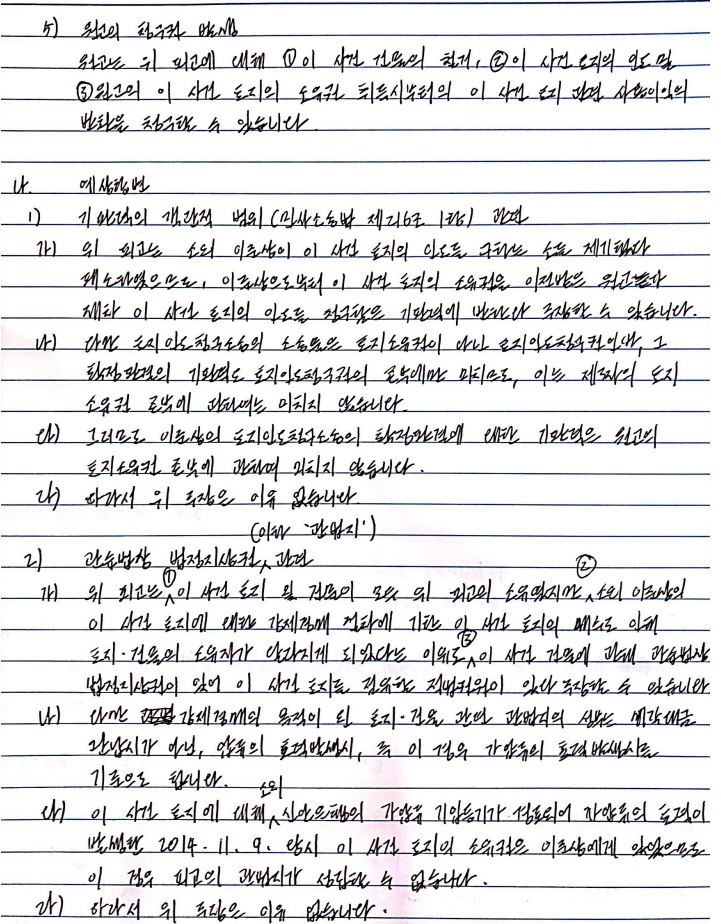 5) 원고의 청구권 발생
원고는 위 피고에 대해 ①이 사건 건물의 철거, ②이 사건 토지의 인도 및
③원고의 이 사건 토지의 소유권 취득시부터의 이 사건 토지 관련 사용이익의
반환을 청구할 수 있습니다.
나. 예상항변
1) 기판력의 객관적 범위(민사소송법 제216조 1항) 관련
가) 위 피고는 소외 이루상이 이 사건 토지의 인도를 구하는 소를 제기했다
패소하였으므로, 이루상으로부터 이 사건 토지의 소유권을 이전받은 원고들이
재차 이 사건 토지의 인도를 청구함은 기판력에 반한다 주장할 수 있습니다.
나) 다만 토지인도청구소송의 소송물은 토지소유권이 아닌 토지인도청구권인바, 그
확정판결의 기판력도 토지인도청구권의 존부에만 미치므로, 이는 제3자의 토지
소유권 존부에 관하여는 미치지 않습니다.
다) 그러므로 이루상의 토지인도청구소송의 확정판결에 대한 기판력은 원고의
토지소유권 존부에 관하여 미치지 않습니다.
라) 따라서 위 주장은 이유 없습니다.
(이하 '관법지')
2) 관습법상 법정지상권 관련
가) 위 피고는 ①이 사건 토지 및 건물이 모두 위 피고의 소유였지만 ②소외 이루상의
이 사건 토지에 대한 강제경매 절차에 기한 이 사건 토지의 매수로 인해
토지·건물의 소유자가 달라지게 되었다는 이유로 ③이 사건 건물에 관해 관습법상
법정지상권이 있어 이 사건 토지를 점유할 적법권원이 있다 주장할 수 있습니다
나) 다만 강제경매의 목적이 된 토지·건물 관련 관법지의 성부는 매각대금
완납시가 아닌, 압류의 효력발생시, 즉 이 경우 가압류의 효력발생시를
기준으로 합니다.
다) 이 사건 토지에 대해 소외 신안은행의 가압류 기입등기가 경료되어 가압류의 효력이
발생한 2014. 11. 9. 당시 이 사건 토지의 소유권은 이루상에게 있었으므로
이 경우 피고의 관법지가 성립할 수 없습니다.
라) 따라서 위 주장은 이유 없습니다.